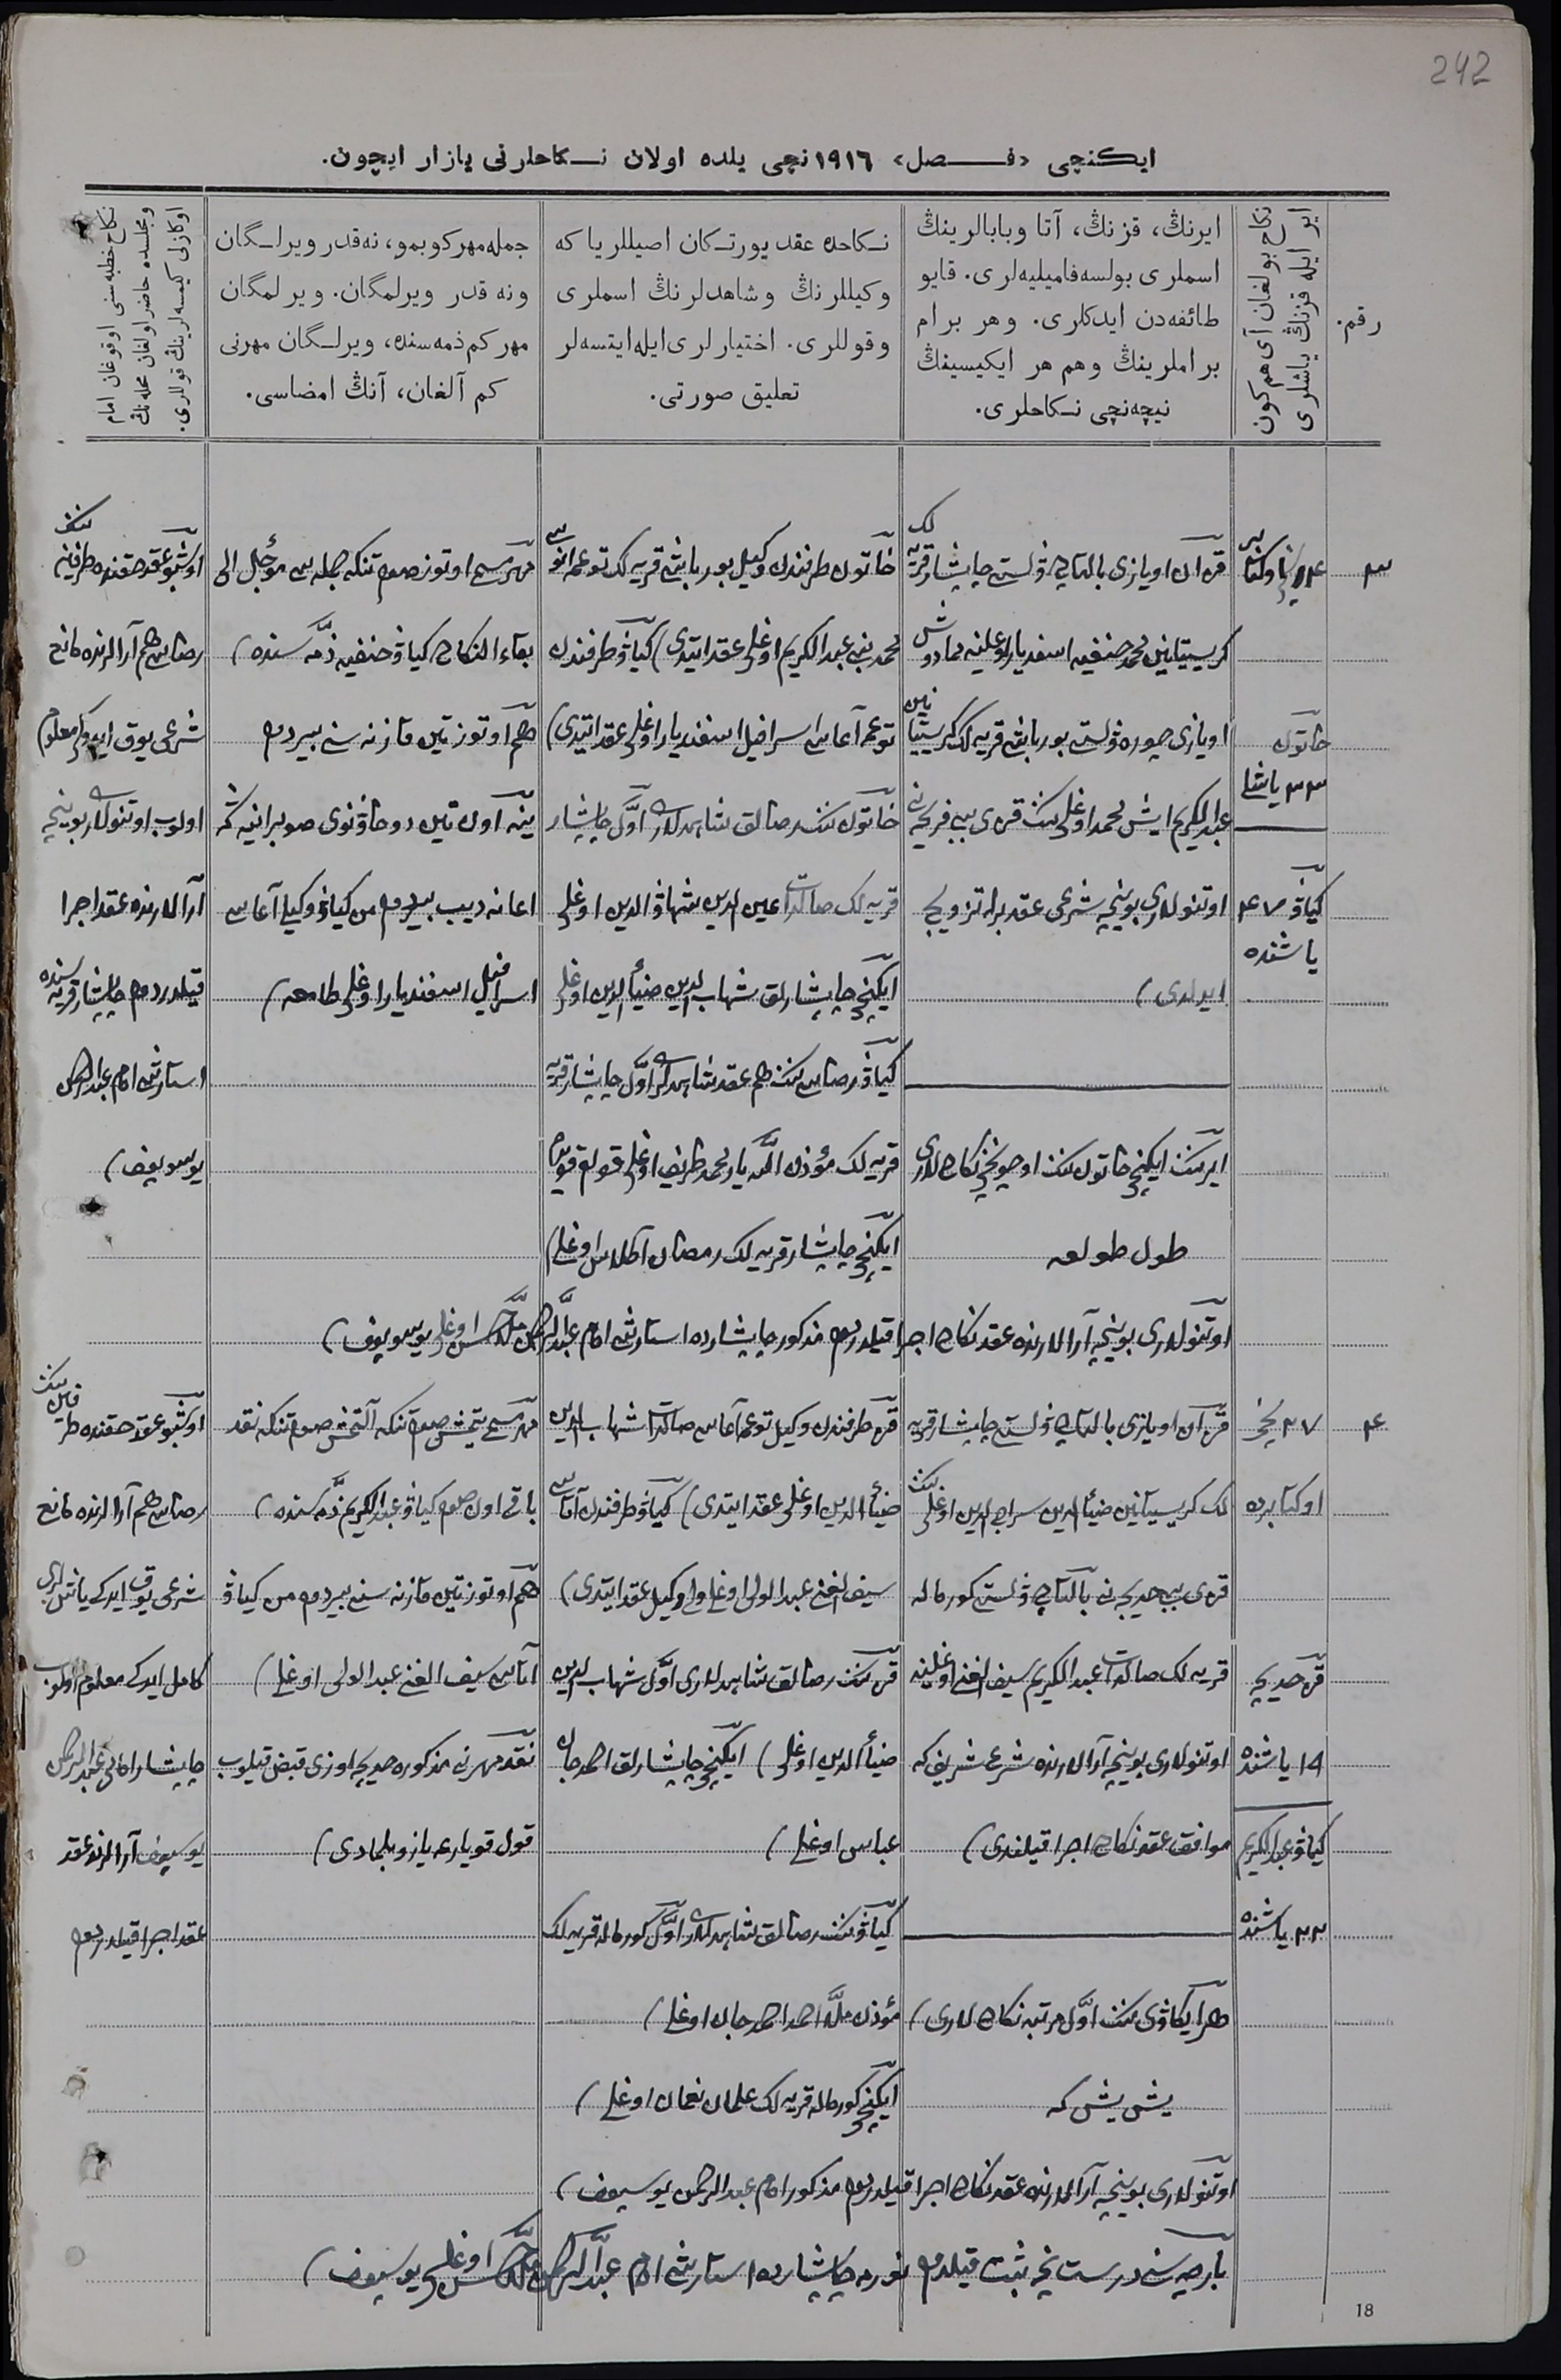 242
ایکنچی «فصل» ١٩١٦نچی یلده اولان نكاحلرنی یازار ایچون.
رقم.
نكاح بولغان آی هم كون
ایر ایله قزنڭ یاشلری
ایرنڭ، قزنڭ، آتا وبابالرینڭ
اسملری بولسه فامیلیه‌لری. قایو
طائفه‌دن ایدكلری. وهر برام
براملرینڭ وهم هر ایكیسینڭ
نیچه‌نچی نكاحلری.
نكاحده عقد یورتكان اصیللر یا كه
وكیللرنڭ وشاهدلرنڭ اسملری
وقوللری. اختیارلری ایله ایتسه‌لر
تعلیق صورتی.
جمله مهر كوبمو، نه‌قدر ویرلگان
ونه قدر ویرلمگان. ویرلمگان
مهر كم ذمه‌سنده، ویرلگان مهرنی
كم آلغان، آنڭ امضاسی.
نكاح خطبه‌سنی اوقوغان امام
ومجلسده حاضر اولغان محله‌نڭ
اوكازلی كیمسه‌لرینڭ قوللری.
٣
خاتون
٣٣ یاشا
كیاو ٤٧
یاشنده
قزان اویازی بالتاچ ولست چاپشار قریه لك
كریستیانین محمد حنفیه اسفندیار اوغلینه مامادوش
اویازی چوره ولست بورباش قریه لك كریستیانین
عبدالكریم ایش محمد اوغلی ننك قزی بیبی فریحه نی
اوتنولاری بوینچه شرعی عقد برله تزویج
ایدلدی)
ایرننك ایكنچی خاتون ننك اوچونچی نكاح لاری
طول طولغه
خاتون طرفندن وكیل بورباش قریه لك توغما انوسی
محمد نبی عبدالكریم اوغلی عقد ایتدی) كیاو طرفندن
توغما آغاسی اسرافیل اسفندیار اوغلی عقد ایتدی)
خاتون ننك رضالق شاهدلاری اول چاپشار
قریه لك صالدات عین الدین شهاب الدین اوغلی
ایكنچی چاپشارلق شهاب الدین ضیاء الدین اوغلی
كیاو رضاسی ننك هم عقد شاهدلاری اول چاپشار قریه
قریه لك مؤذن الله یار محمد ظریف اوغلی قول قویدم
ایكنچی چاپشار قریه لك رمضان آطلاس اوغلی)
مهر مسمی اوتوز صوم تنكه جمله سی مؤجل الی
بقاء النكاح كیاو حنفیه ذمه سنده)
هم اوتوز تین قازنه سنی بیردم
ینه اون تین دوخاونوی صوبرانیه گه
اعانه دیب بیردم من كیاو وكیلی آغاسی
اسرافیل اسفندیار اوغلی طامغه)
اوشبو عقد حقنده طرفین ننك
رضاسی هم آرالارنده مانع
شرعی یوق ایدوكی معلوم
اولوب اوتنولاری بوینچه
آرالارنده عقد اجرا
قیلدردم چاپشار قریه سنده
استارشی امام عبدالرحمن
یوسوپوف)
اوتنولاری بوینچه آرالارنده عقد نكاح اجرا قیلدردم مذكور چاپشارده استارشی امام عبدالرحمن ملا حسن اوغلی یوسوپوف)
٤
٢٧ نچی
اوكتابرده
قز خدیجه
١٩ یاشنده
كیاو عبدالكریم
٢٣ یاشنده
قزان اویازی بالتاچ ولست چاپشار قریه
لك كریستیانین ضیاء الدین سراج الدین اوغلی ننك
قزی بیبی خدیجه نی بالتاچ ولست كورماله
قریه لك صالدات عبدالكریم سیف الغنی اوغلینه
اوتنولاری بوینچه آرالارنده شرع شریف كه
موافق عقد نكاح اجرا قیلندی)
هر ایكاوی ننك اول مرتبه نكاح لاری)
یش یش كه
قز طرفندن وكیل توغما آغاسی صالدات شهاب الدین
ضیاء الدین اوغلی عقد ایتدی) كیاو طرفندن آتاسی
سیف الغنی عبدالولی اوغلی ولی وكیل عقد ایتدی)
قز ننك رضالق شاهدلاری اول شهاب الدین
ضیاء الدین اوغلی) ایكنچی چاپشارلق احمدجان
عباس اوغلی)
كیاو ننك رضالق شاهدلاری اول كورماله قریه لك
مؤذن ملا احمد احمدجان اوغلی)
ایكنچی كورماله قریه لك علمان نعمان اوغلی)
مهر مسمی یتمش صوم تنكه آلتمش صوم تنكه نقد
باقی اون صوم كیاو عبدالكریم ذمه سنده)
هم اوتوز تین قازنه سنی بیردم من كیاو
آتاسی سیف الغنی عبدالولی اوغلی)
نقد مهرنی مذكوره خدیجه اوزی قبض قیلوب
قول قویارغه یازو بلمادی)
اوشبو عقد حقنده طرفین ننك
رضاسی هم آرالارنده مانع
شرعی یوق ایدكی یاشلری
كامل ایدكی معلوم اولوب
چاپشار امامی عبدالرحمن
یوسیپوف آرالارنده عقد
عقد اجرا قیلدردم
اوتنولاری بوینچه آرالارنده عقد نكاح اجرا قیلدردم مذكور امام عبدالرحمن یوسیپوف)
بارچه سنی درست نچه ثبت قیلدم چاپشارده استارشی امام عبدالرحمن ملا حسن اوغلی یوسیپوف)
18